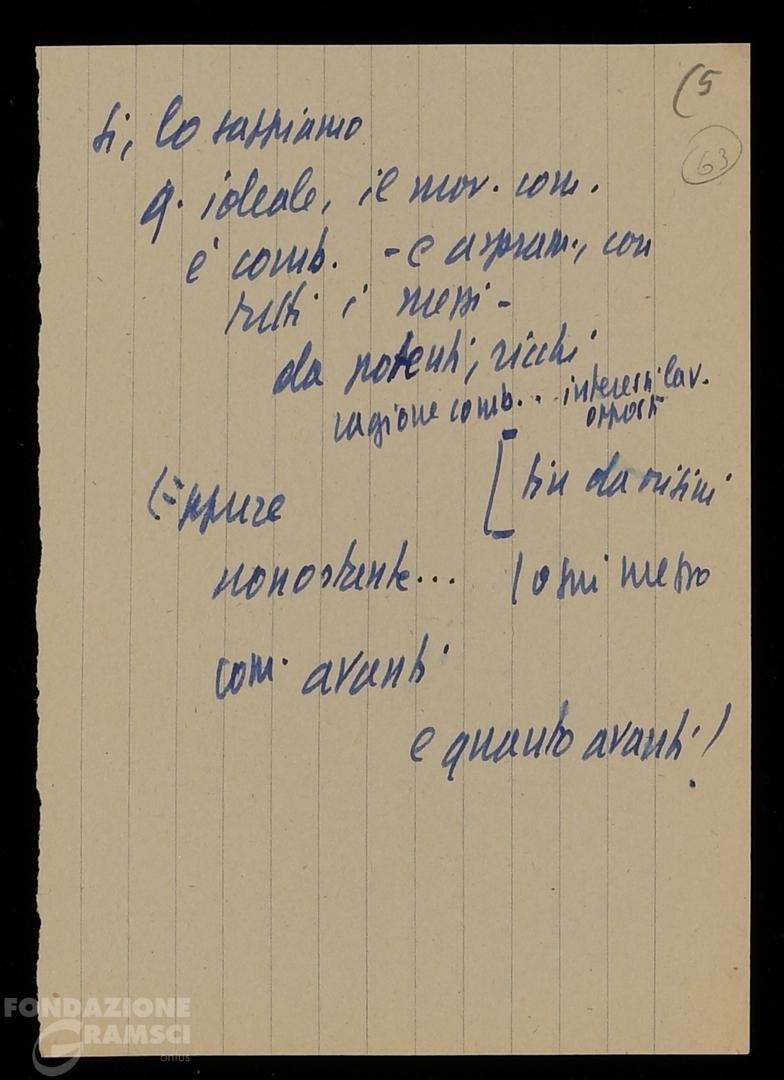 (5
63
Sì, lo sappiamo
q. ideale, il mov. com.
è comb. - e aspram., con
tutti i mezzi -
da potenti, ricchi
ragione comb... interessi lav.
opposti
[ sin da inizi
Eppure
nonostante... ogni mezzo
com. avanti
e quanto avanti!
FONDAZIONE
GRAMSCI
onlus